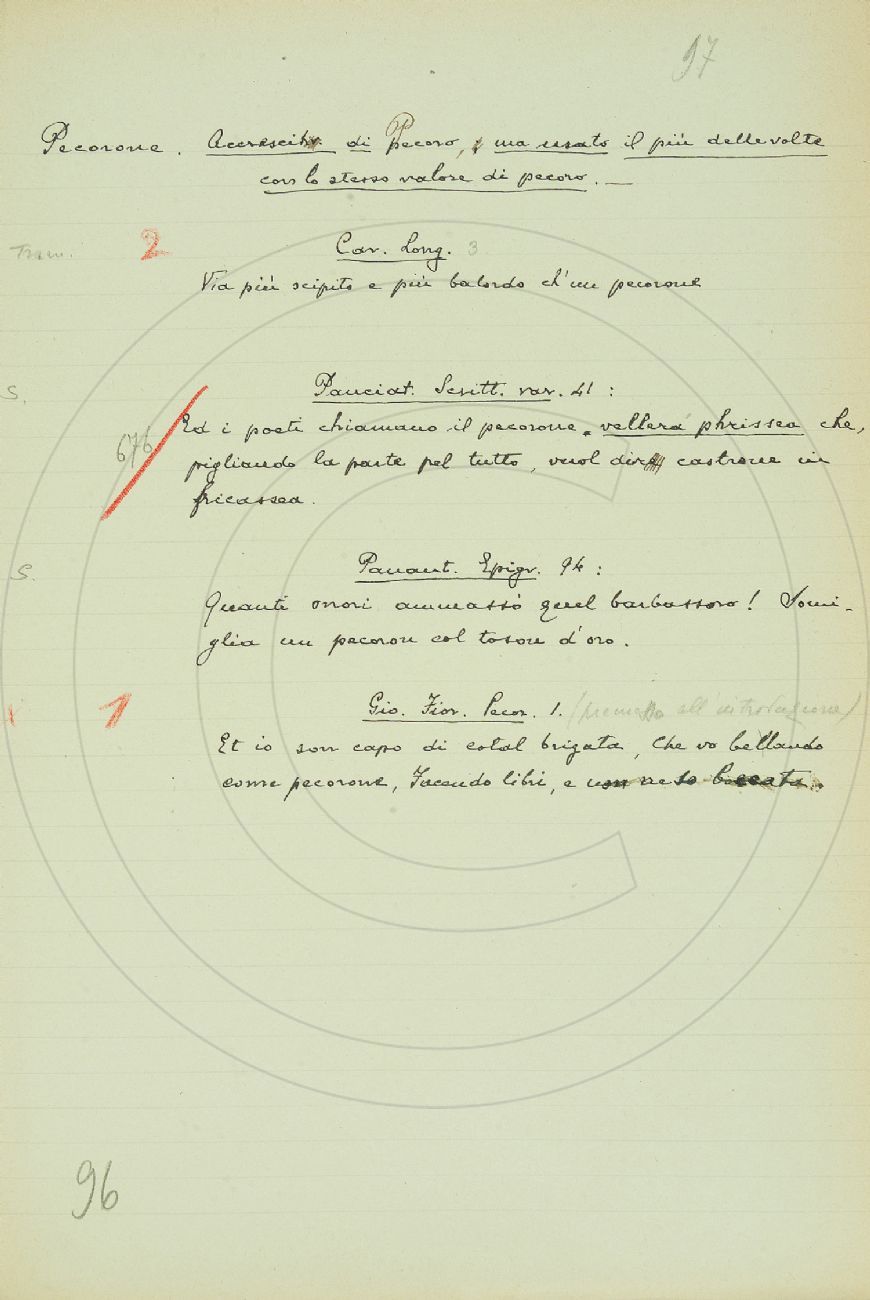 97
Pecorone. Accrescit. di Pecoro, ma usato il più delle volte
con lo stesso valore di pecoro. —
Tram. 2 Cav. Long. 3
Via più scipito e più balordo ch'un pecorone
S. Panciat. Scritt. var. 41 :
676 Ed i poeti chiamano il pecorone vellera phrissea che,
pigliando la parte pel tutto, vuol dir castrone in
fricassea.
S. Panant. Epigr. 94 :
Quanti onori ammassò quel barbassoro! Somi-
glia un pecoron col toson d'oro.
1 Gio. Fior. Pecor. 1. (premesso all'introduzione)
Et io son capo di cotal brigata, Che vo bellando
come pecorone, Facendo libri, e non ne so boccata.
96